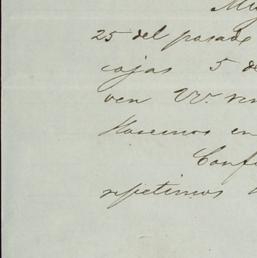 25 del pasado
cajas 5 de
ven Vv.
Hacemos en
Conf
repetimos